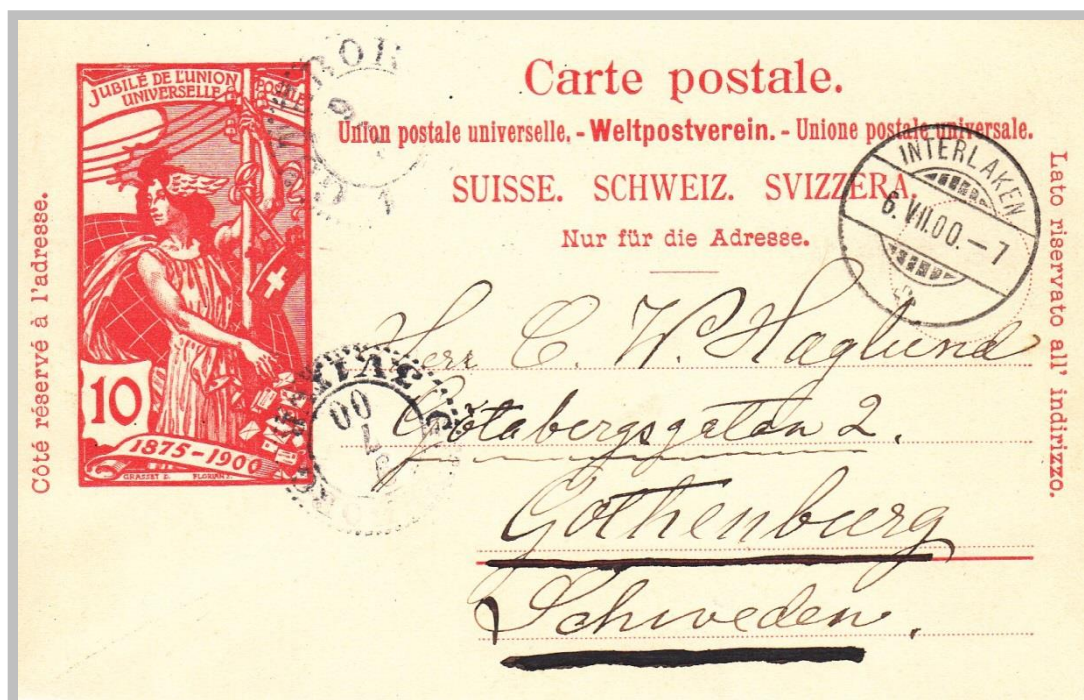 JUBILÉ DE L'UNION
POSTALE
UNIVERSELLE
10
1875-1900
GRASSET E. FLORIAN F.
Côté réservé à l'adresse.
Carte postale.
Union postale universelle. - Weltpostverein. - Unione postale universale.
SUISSE. SCHWEIZ. SVIZZERA.
Nur für die Adresse.
INTERLAKEN
6.VII.00.-7
Lato riservato all' indirizzo.
Herr C. W. Haglund
Götabergsgatan 2.
Gothenburg
Schweden.